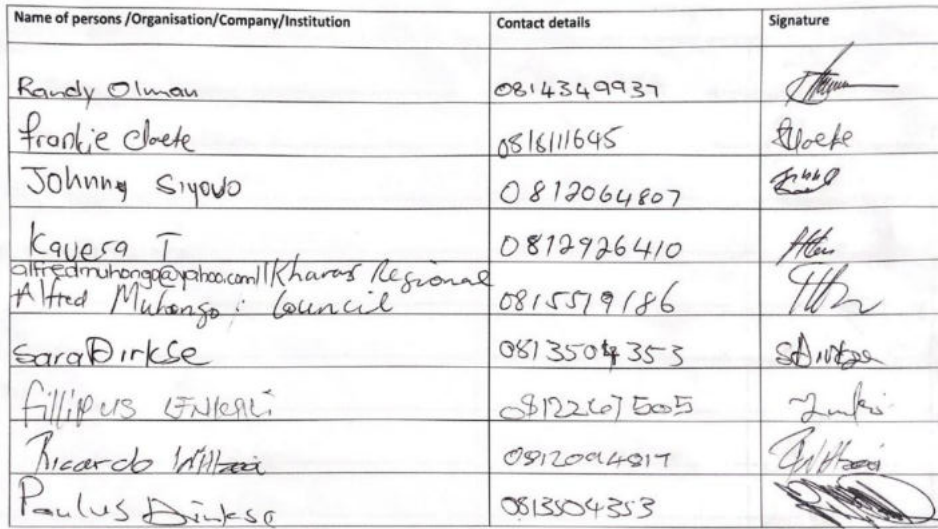 Name of persons /Organisation/Company/Institution Contact details Signature
Randy Olman 0814349937
Frankie Cloete 0816111645 Cloete
Johnny Siyovo 0812064807
Kavera T 0812926410
alfredmuhongo@yahoo.com //Kharas Regional
Alfred Muhongo : Council 0815579186
Sara Dirkse 0813504353 SDirkse
Fillipus 0812267505
Ricardo Witbooi 0812094817 RWitbooi
Paulus Dirkse 0813504353